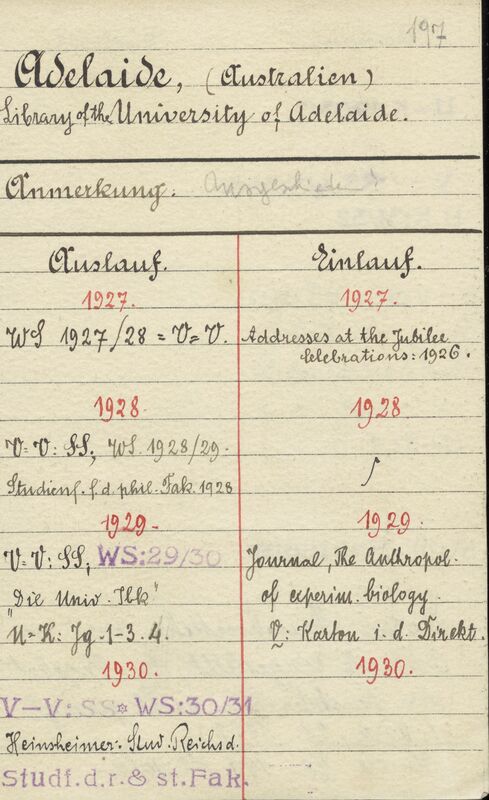 197
Adelaide, (Australien)
Library of the University of Adelaide.
Anmerkung: Ausgeschieden
Auslauf.
1927.
WS 1927/28 = V=V.
1928.
V=V: SS, WS. 1928/29.
Studienf. f. d. phil. Fak. 1928
1929.-
V=V: SS, WS:29/30
"Die Univ. Ibk"
U=K: Jg. 1-3. 4.
1930.
V-V: SS* WS:30/31
Heinsheimer: Stud. Reichsd.
Studf. d. r. & st. Fak.
Einlauf.
1927.
Addresses at the Jubilee
Celebrations: 1926.
1928
1929.
Journal, The Anthropol.
of experim. biology.
V: Karton i. d. Direkt.
1930.